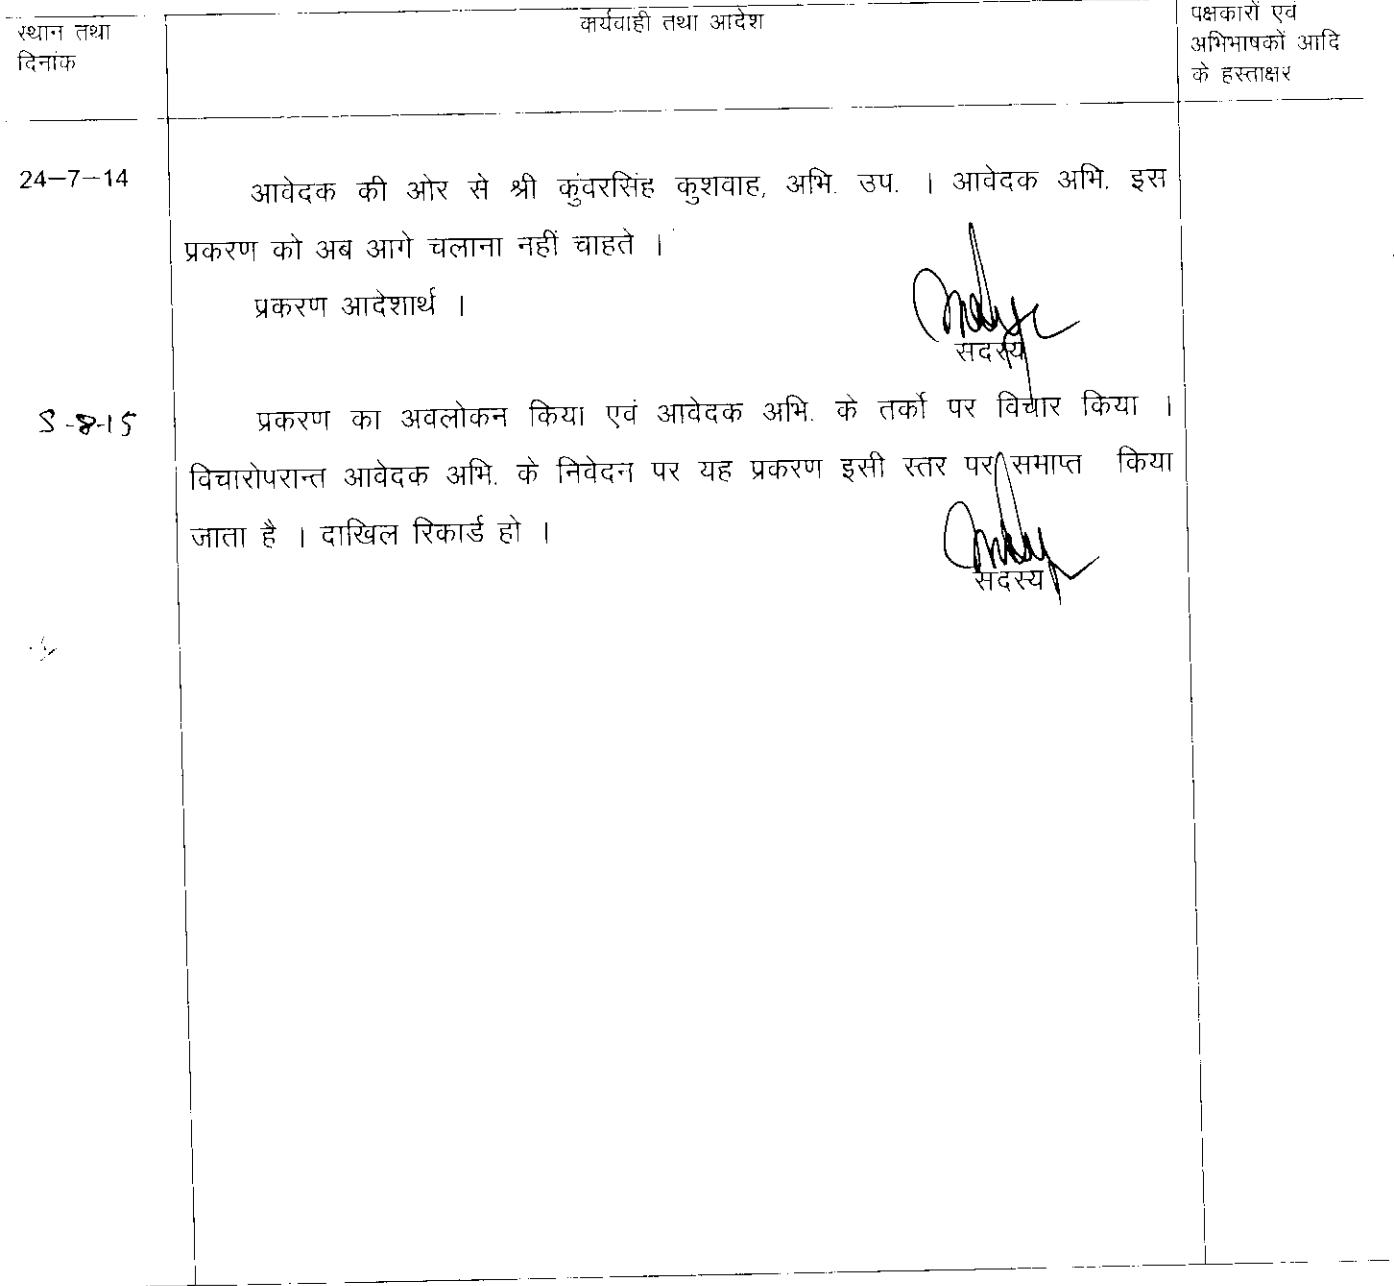 स्थान तथा
दिनांक
कार्यवाही तथा आदेश
पक्षकारों एवं
अभिभाषकों आदि
के हस्ताक्षर
24-7-14
आवेदक की ओर से श्री कुंवरसिंह कुशवाह, अभि. उप. । आवेदक अभि. इस
प्रकरण को अब आगे चलाना नहीं चाहते ।
प्रकरण आदेशार्थ ।
सदस्य
5-8-15
प्रकरण का अवलोकन किया एवं आवेदक अभि. के तर्को पर विचार किया ।
विचारोपरान्त आवेदक अभि. के निवेदन पर यह प्रकरण इसी स्तर पर समाप्त किया
जाता है । दाखिल रिकार्ड हो ।
सदस्य